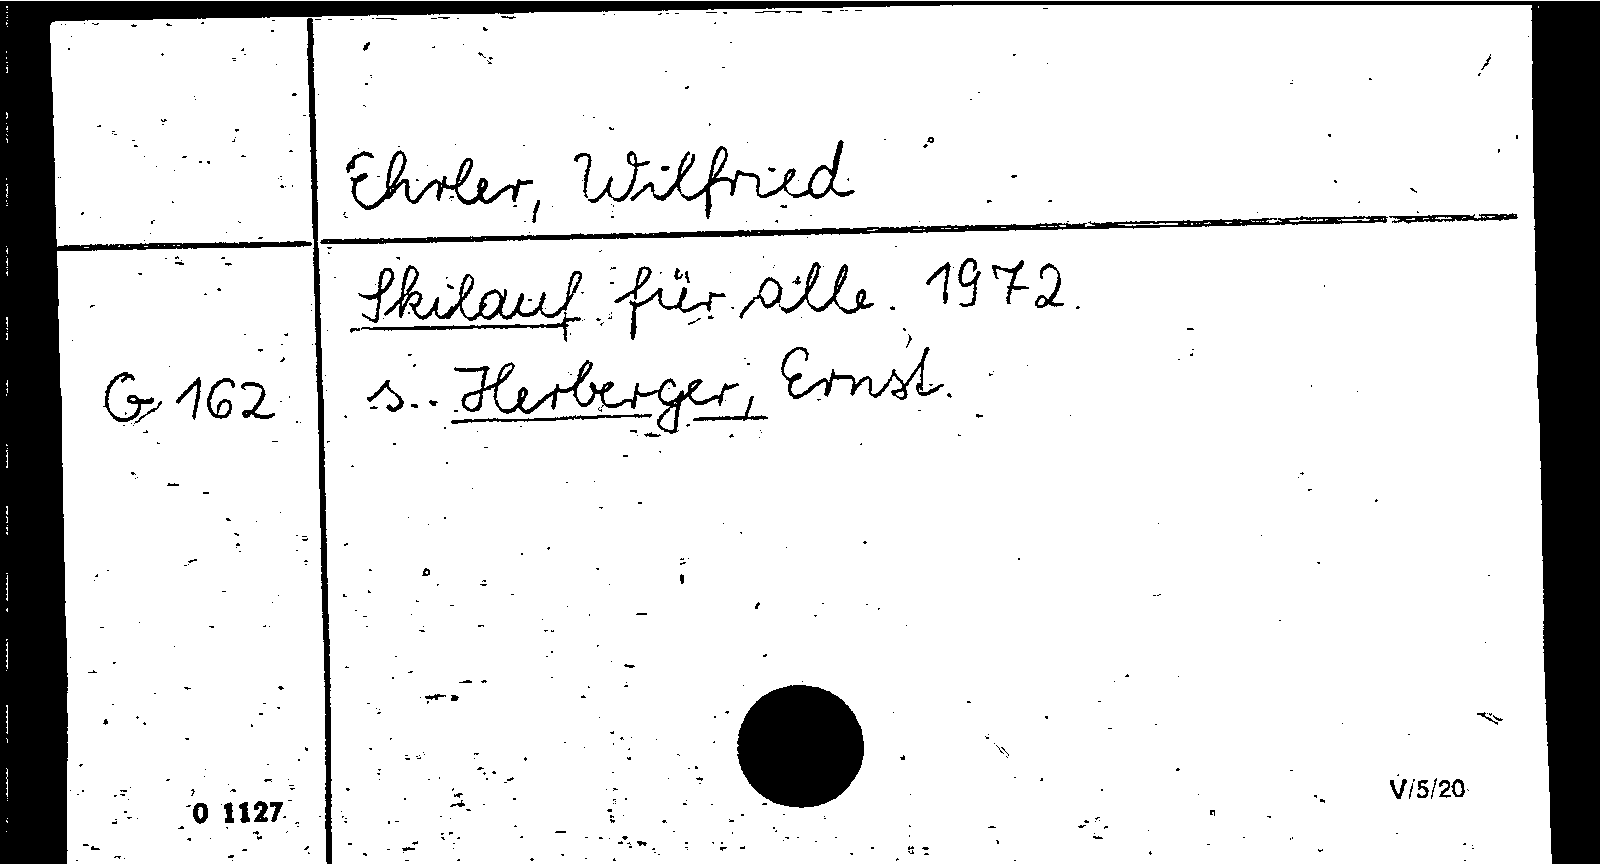 Ehrler, Wilfried
Skilauf für alle. 1972.
G 162 s. Herberger, Ernst.
0 1127
V/5/20